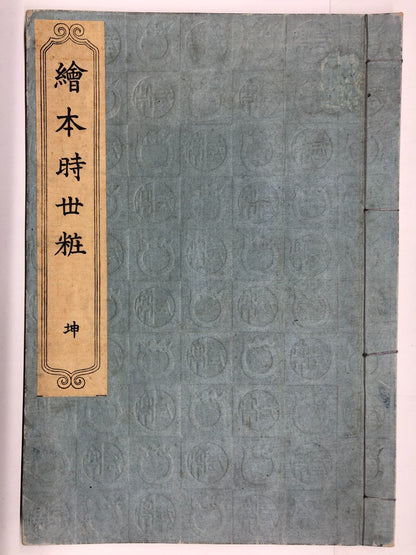 繪本時世粧
坤